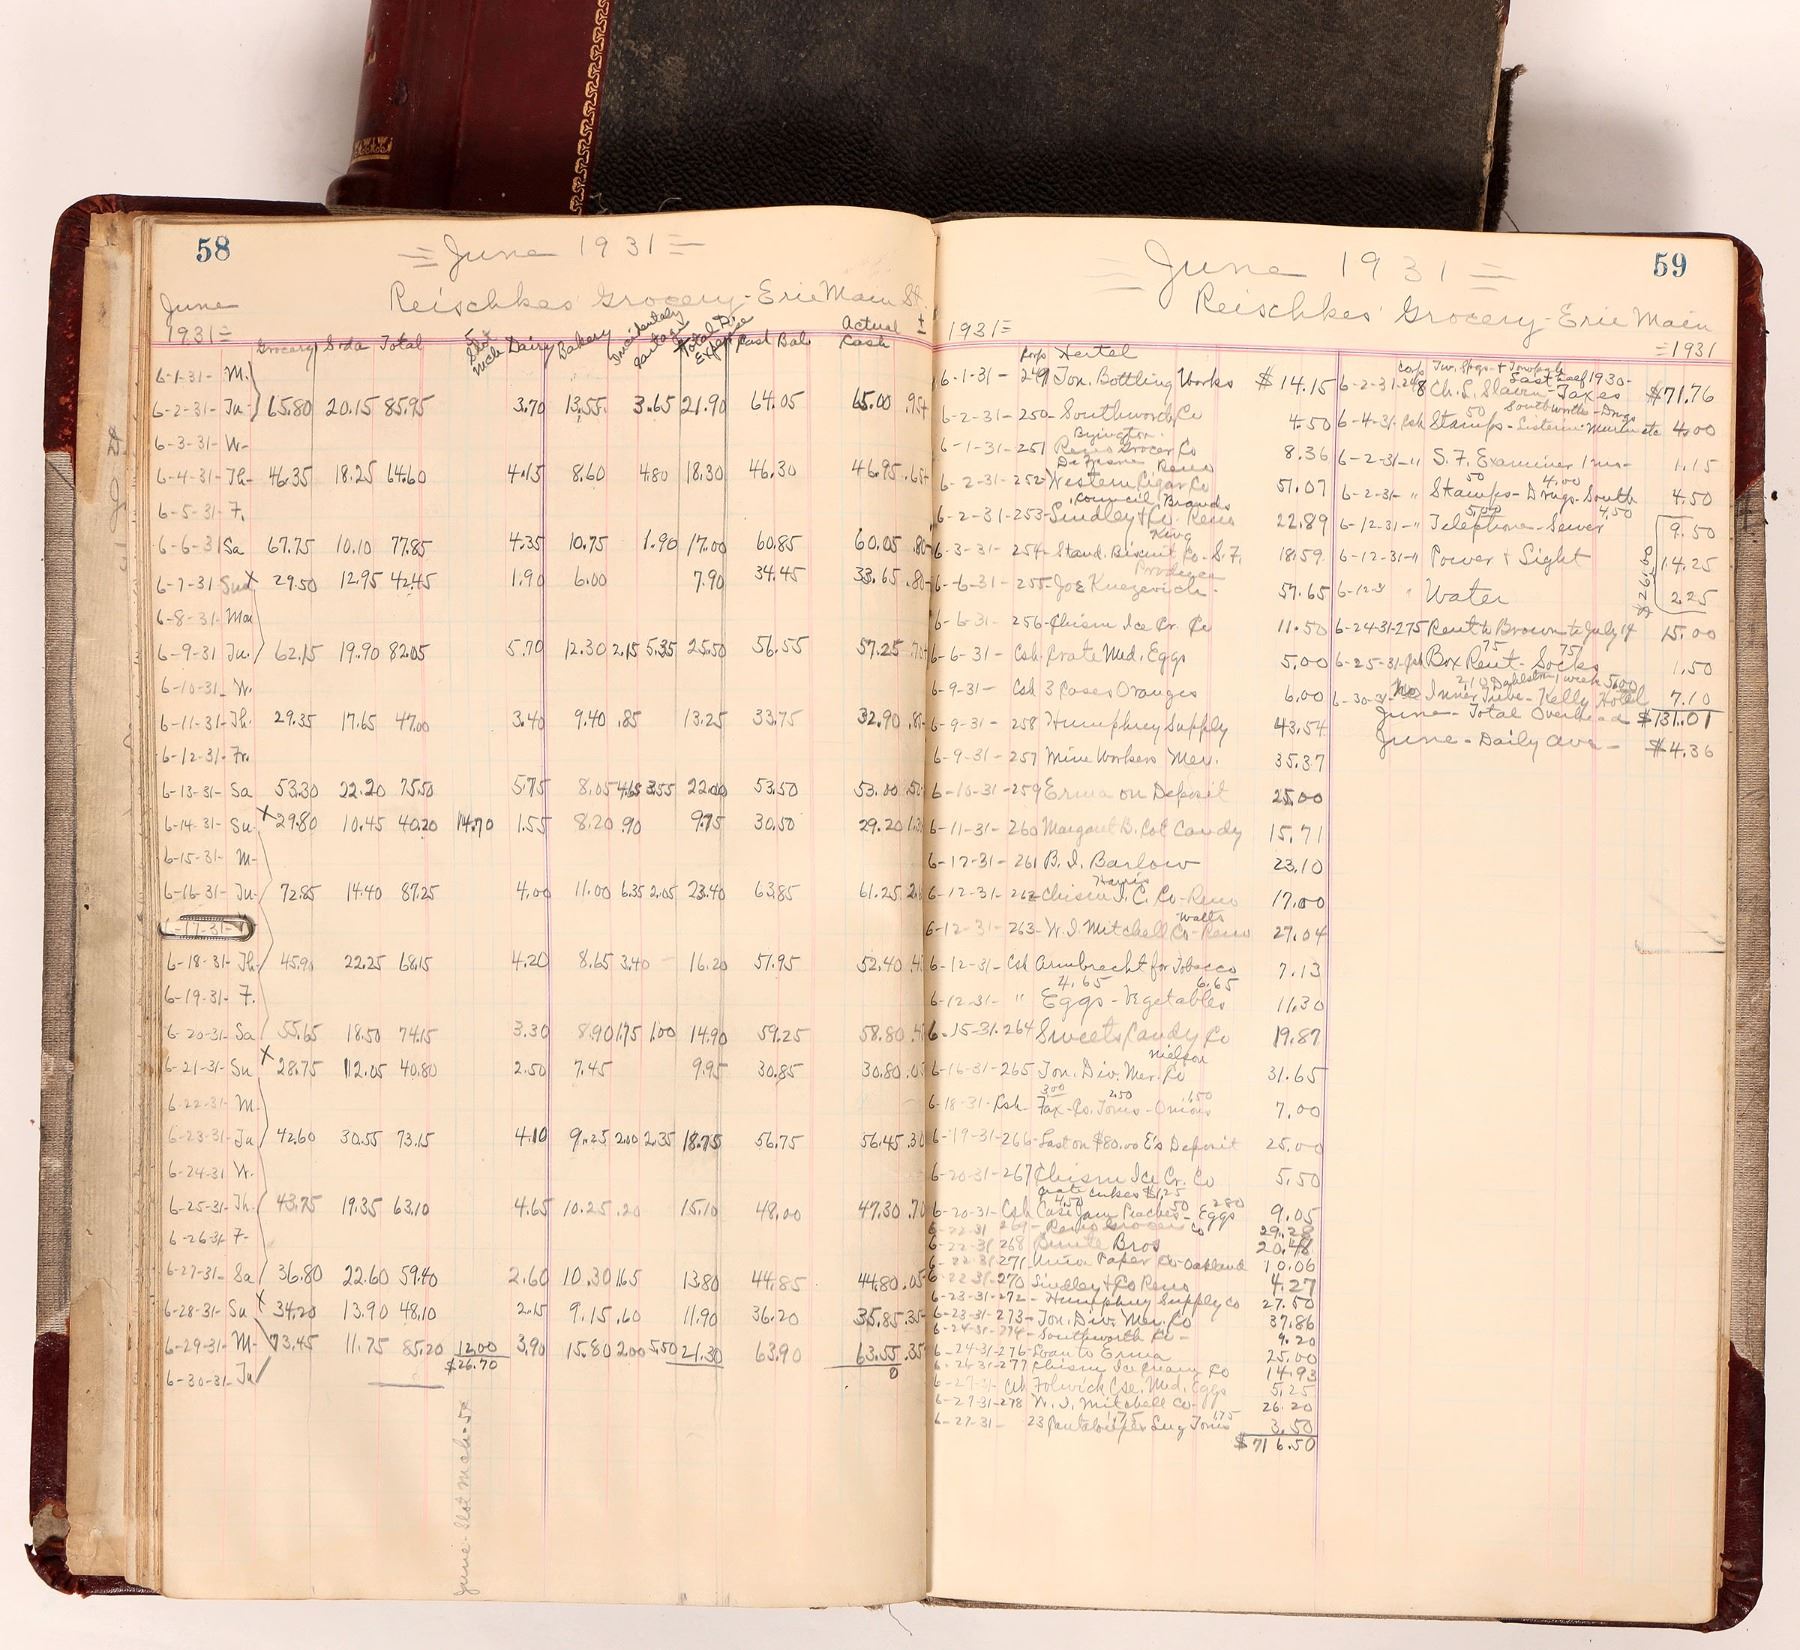 58
= June 1931 =
June Reischkes' Grocery - Erie Main St.
1931 =
Grocery Soda Total 5¢ Slot Mch Dairy Bakery Incidentals Total D. Expense Cast Bal. Actual Cash ±
6-1-31- M.
6-2-31- Tu- 65.80 20.15 85.95 3.70 13.55 3.65 21.90 64.05 65.00 .95+
6-3-31- W-
6-4-31- Th- 46.35 18.25 64.60 4.15 8.60 4.80 18.30 46.30 46.95 .65+
6-5-31- F.
6-6-31 Sa 67.75 10.10 77.85 4.35 10.75 1.90 17.00 60.85 60.05 .80-
6-7-31 Sun x 29.50 12.95 42.45 1.90 6.00 7.90 34.45 33.65 .80-
6-8-31- Mon
6-9-31 Tu. 62.15 19.90 82.05 5.70 12.30 2.15 5.35 25.50 56.55 57.25 .70+
6-10-31- W.
6-11-31- Th. 29.35 17.65 47.00 3.40 9.40 .85 13.25 33.75 32.90 .85-
6-12-31- Fr.
6-13-31- Sa 53.30 22.20 75.50 5.75 8.05 4.65 3.55 22.00 53.50 53.00 .50-
6-14-31- Su- x 29.80 10.45 40.20 14.70 1.55 8.20 .90 9.75 30.50 29.20 1.30
6-15-31- M-
6-16-31- Tu- 72.85 14.40 87.25 4.00 11.00 6.35 2.05 23.40 63.85 61.25 2.6
6-17-31- W
6-18-31- Th- 45.90 22.25 68.15 4.20 8.65 3.40 - 16.20 51.95 52.40 .4
6-19-31- F.
6-20-31- Sa 55.65 18.50 74.15 3.30 8.90 1.75 1.00 14.90 59.25 58.80 .4
6-21-31- Su x 28.75 12.05 40.80 2.50 7.45 9.95 30.85 30.80 .05
6-22-31- M.
6-23-31- Tu 42.60 30.55 73.15 4.10 9.25 2.00 2.35 18.75 56.75 56.45 .30
6-24-31 W.
6-25-31- Th- 43.75 19.35 63.10 4.65 10.25 .20 15.10 48.00 47.30 .70
6-26-31 F-
6-27-31- Sa 36.80 22.60 59.40 2.60 10.30 1.65 13.80 44.85 44.80 .05
6-28-31- Su x 34.20 13.90 48.10 2.15 9.15 .60 11.90 36.20 35.85 .35-
6-29-31- M- 73.45 11.75 85.20 12.00 3.90 15.80 2.00 5.50 21.30 63.90 63.55 .35
$26.70 0
6-30-31- Tu
June - Slot Mach - 5¢
59
= June 1931 =
Reischkes' Grocery - Erie Main
1931 = = 1931
Hertel
6-1-31- 249 Ton. Bottling Works $14.15
6-2-31- 250- Southworth Co 4.50
Byington
6-1-31- 251 Reno Grocer Co 8.36
Reno
6-2-31- 252- Western Cigar Co 51.07
Council Brands
6-2-31- 253- Lindley & Co. Reno 22.89
King
6-3-31- 254- Stand. Biscuit Co- S.F. 18.59
Producer
6-6-31- 255- Joe Knezevich- 57.65
6-6-31- 256- Chism Ice Cr. Co 11.50
6-6-31- Csh Crate Med. Eggs 5.00
6-9-31- Csh 3 Cases Oranges 6.00
6-9-31- 258 Humphrey Supply 43.54
6-9-31- 257 Mine Workers Mer. 35.37
6-10-31- 259 Erma on Deposit 25.00
6-11-31- 260 Margaret B. Cot Candy 15.71
6-12-31- 261 B.I. Barlow 23.10
Harris
6-12-31- 262 Chism I.C. Co- Reno 17.00
Watts
6-12-31- 263- W.I. Mitchell Co- Reno 27.04
6-12-31- Csh Armbrecht for Tobacco 7.13
4.65 6.65
6-12-31- " Eggs - Vegetables 11.30
6-15-31- 264 Sweets Candy Co 19.87
Nielson
6-16-31- 265 Ton. Div. Mer. Co 31.65
3.00 2.50 1.50
6-18-31- Csh- Tax- Co. Toms - Onions 7.00
6-19-31- 266- Last on $80.00 E's Deposit 25.00
6-20-31- 267 Chism Ice Cr. Co 5.50
4.50 50 2.80
6-20-31- Csh Case Jam Peaches - Eggs 9.05
6-22-31 269- Reno Grocer Co 29.28
6-22-31 268 Bros 20.48
6-22-31- 271 Union Paper Co- Oakland 10.06
6-22-31- 270 Lindley & Co Reno 4.27
6-23-31- 272- Humphrey Supply Co 27.50
6-23-31- 273- Ton. Div. Mer. Co 37.86
6-24-31- 274- Southworth Co- 4.20
6-24-31- 276- Loan to Erma 25.00
6-26-31- 277 Chism Ice Cream Co 14.93
6-27-31- Csh Folwick Cse. Med. Eggs 5.25
6-27-31- 278 W.I. Mitchell Co- 26.20
1.75 1.75
6-27-31- 23 Cantaloupes Lug Toms 3.50
$716.50
Tw. Spgs- & Township
Last half 1930-
6-2-31- 248 Ch. L. Slavin Taxes $71.76
50 Southworths - Drugs
6-4-31- Csh Stamps- Listerine- Murine etc 4.00
6-2-31- " S.F. Examiner 1 mo- 1.15
50 4.00
6-2-31- " Stamps- Drugs- South 4.50
5.00 4.50
6-12-31- " Telephone- Sewer 9.50
6-12-31- " Power & Light 14.25
6-12-31 " Water 2.25
$26.00
6-24-31- 275 Rent to Brown to July 14 15.00
75 75
6-25-31- Csh Box Rent- Socks 1.50
2.10 Dahlstrom 1 week 5.00
6-30-31- Inner Tube- Kelly Hotel 7.10
June- Total Overhead $131.01
June- Daily Ave- $4.36